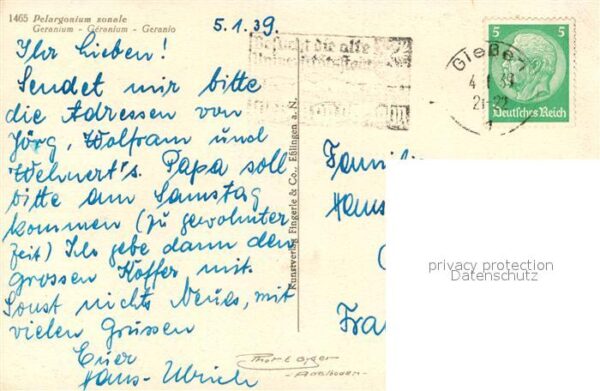 1465 Pelargonium zonale
Geranium - Géranium - Geranio
5.1.39.
Ihr Lieben!
Sendet mir bitte
die Adressen von
Jörg, Wolfram und
Wehnert's. Papa soll
bitte am Samstag
kommen (zu gewohnter
Zeit) Ich gebe dann den
grossen Koffer mit.
Sonst nichts Neues, mit
vielen Grüssen
Euer
Hans-Ulrich
Kunstverlag Fingerle & Co., Eßlingen a. N.
Besucht die alte
Universitätsstadt
Gießen
4.1.39
21-22
5 5
Deutsches Reich
Familie
Hans
Fra
privacy protection
Datenschutz
- Adelboden -